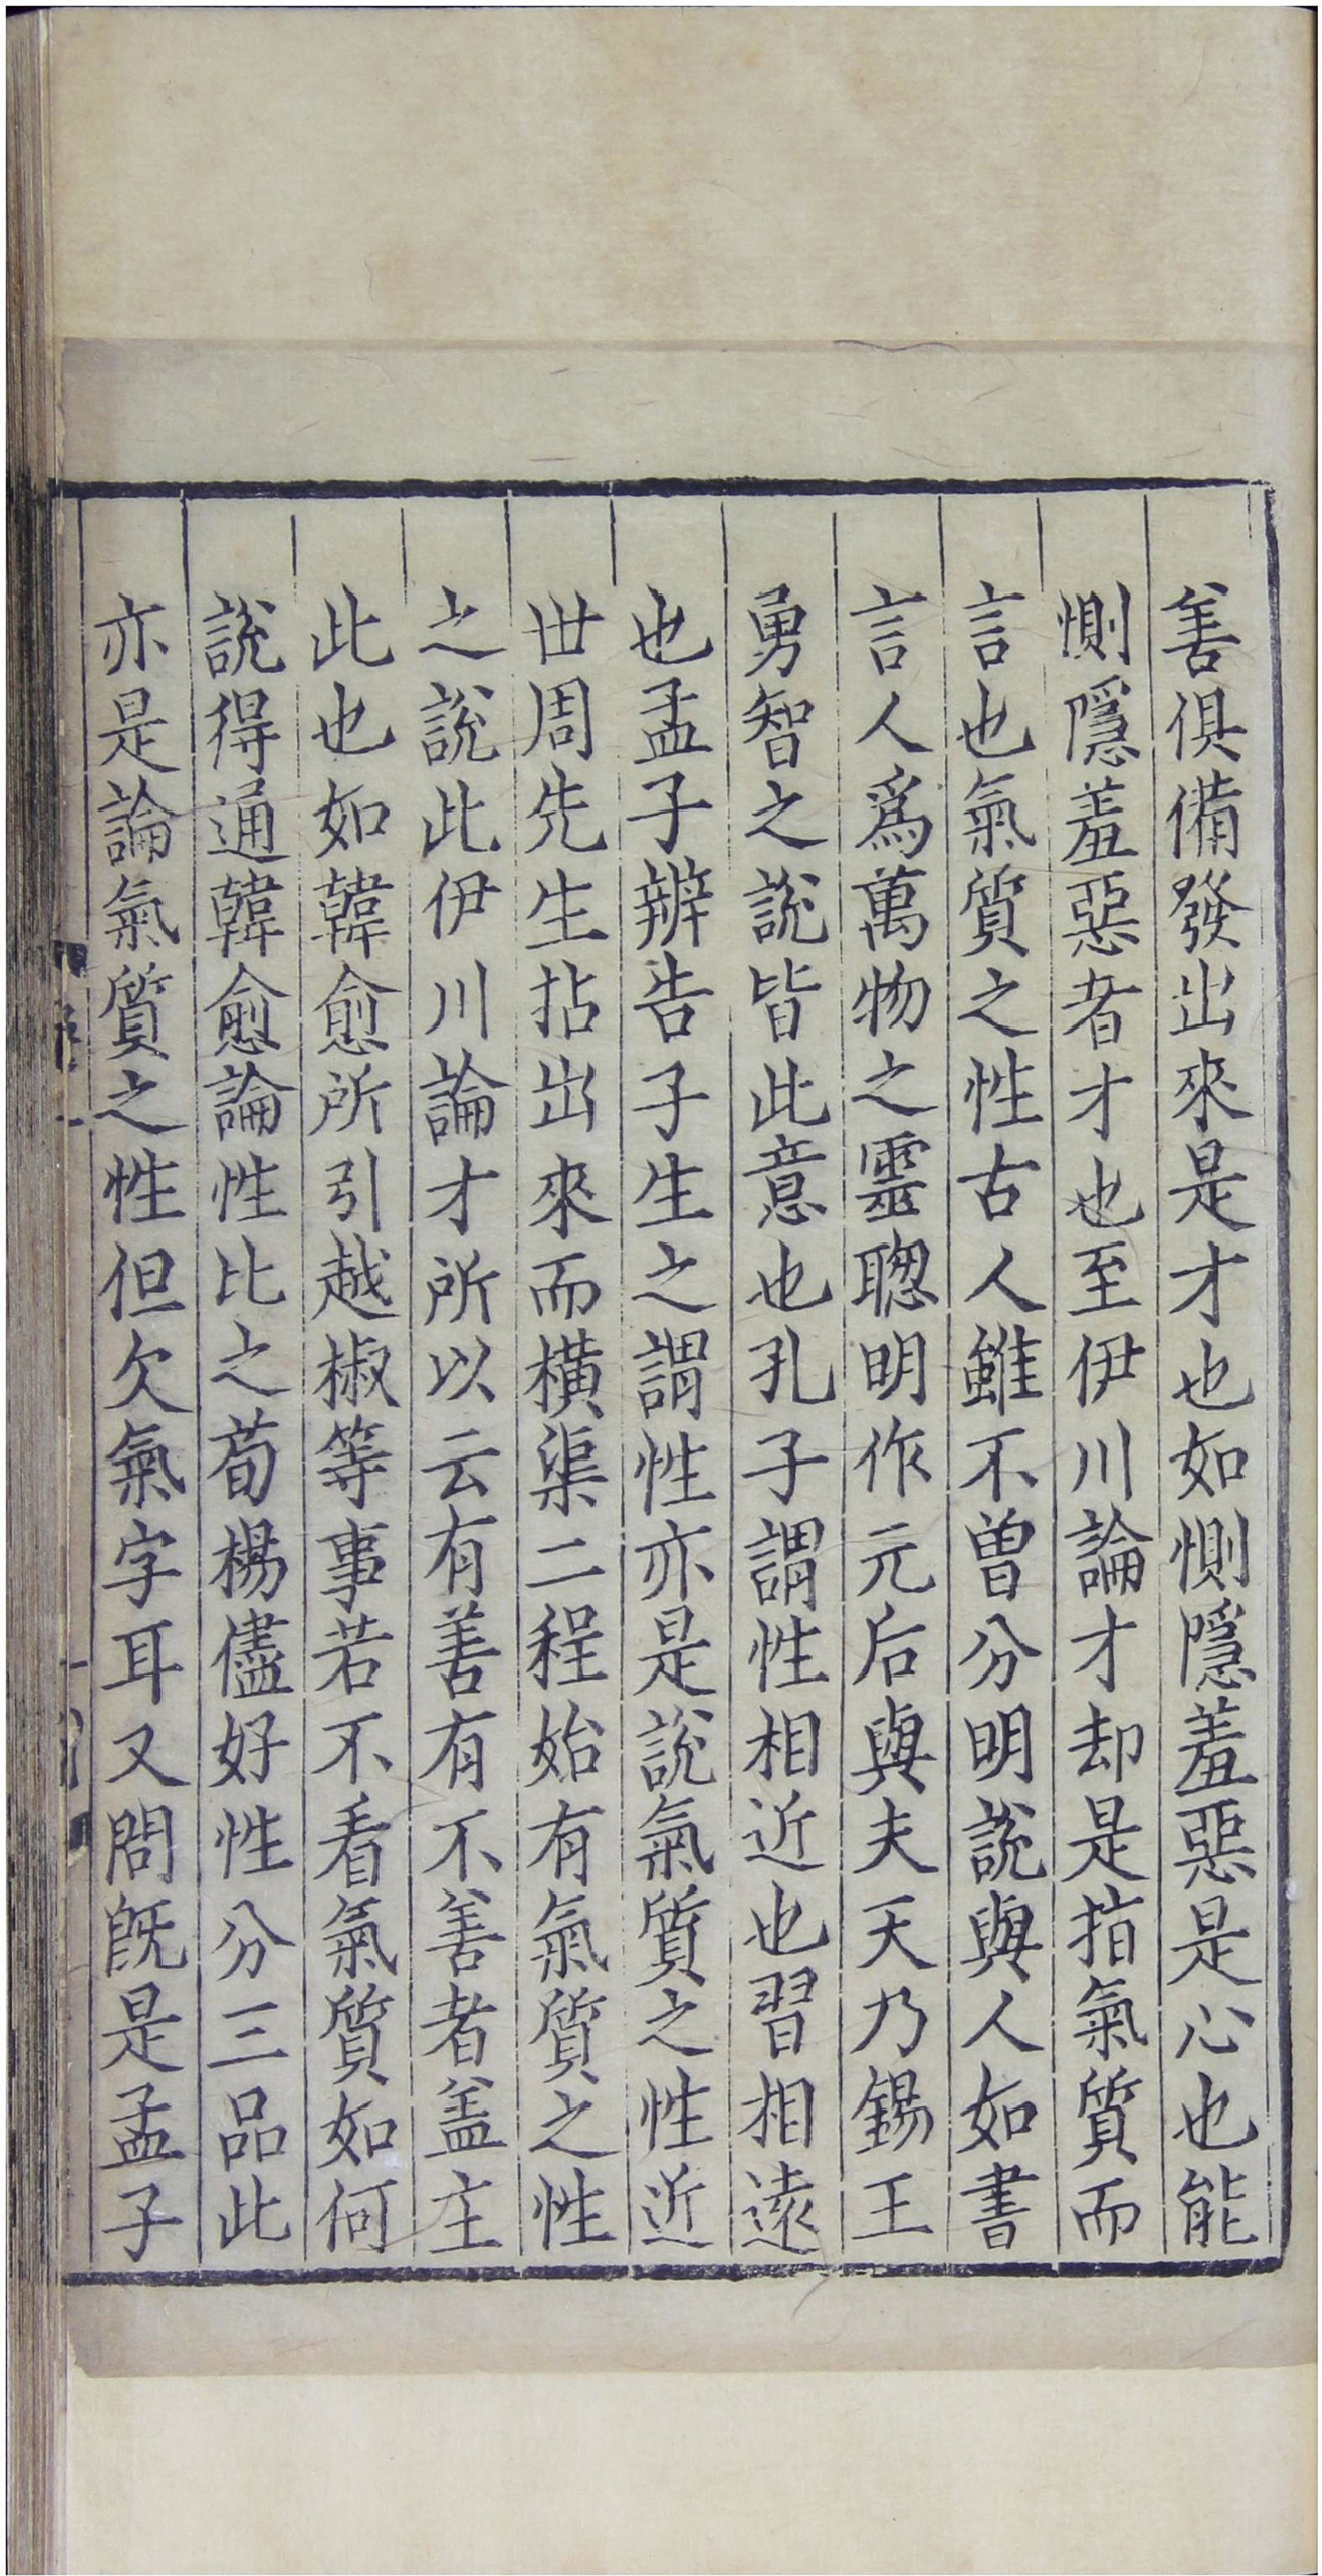 善俱備發出來是才也如惻隱羞惡是心也能
惻隱羞惡者才也至伊川論才却是指氣質而
言也氣質之性古人雖不曽分明說與人如書
言人爲萬物之靈聰明作元后與夫天乃錫王
勇智之說皆此意也孔子謂性相近也習相逺
也孟子辨告子生之謂性亦是說氣質之性近
世周先生拈出來而橫渠二程始有氣質之性
之說此伊川論才所以云有善有不善者盖主
此也如韓愈所引越椒等事若不看氣質如何
說得通韓愈論性比之荀楊儘好性分三品此
亦是論氣質之性但欠氣字耳又問既是孟子